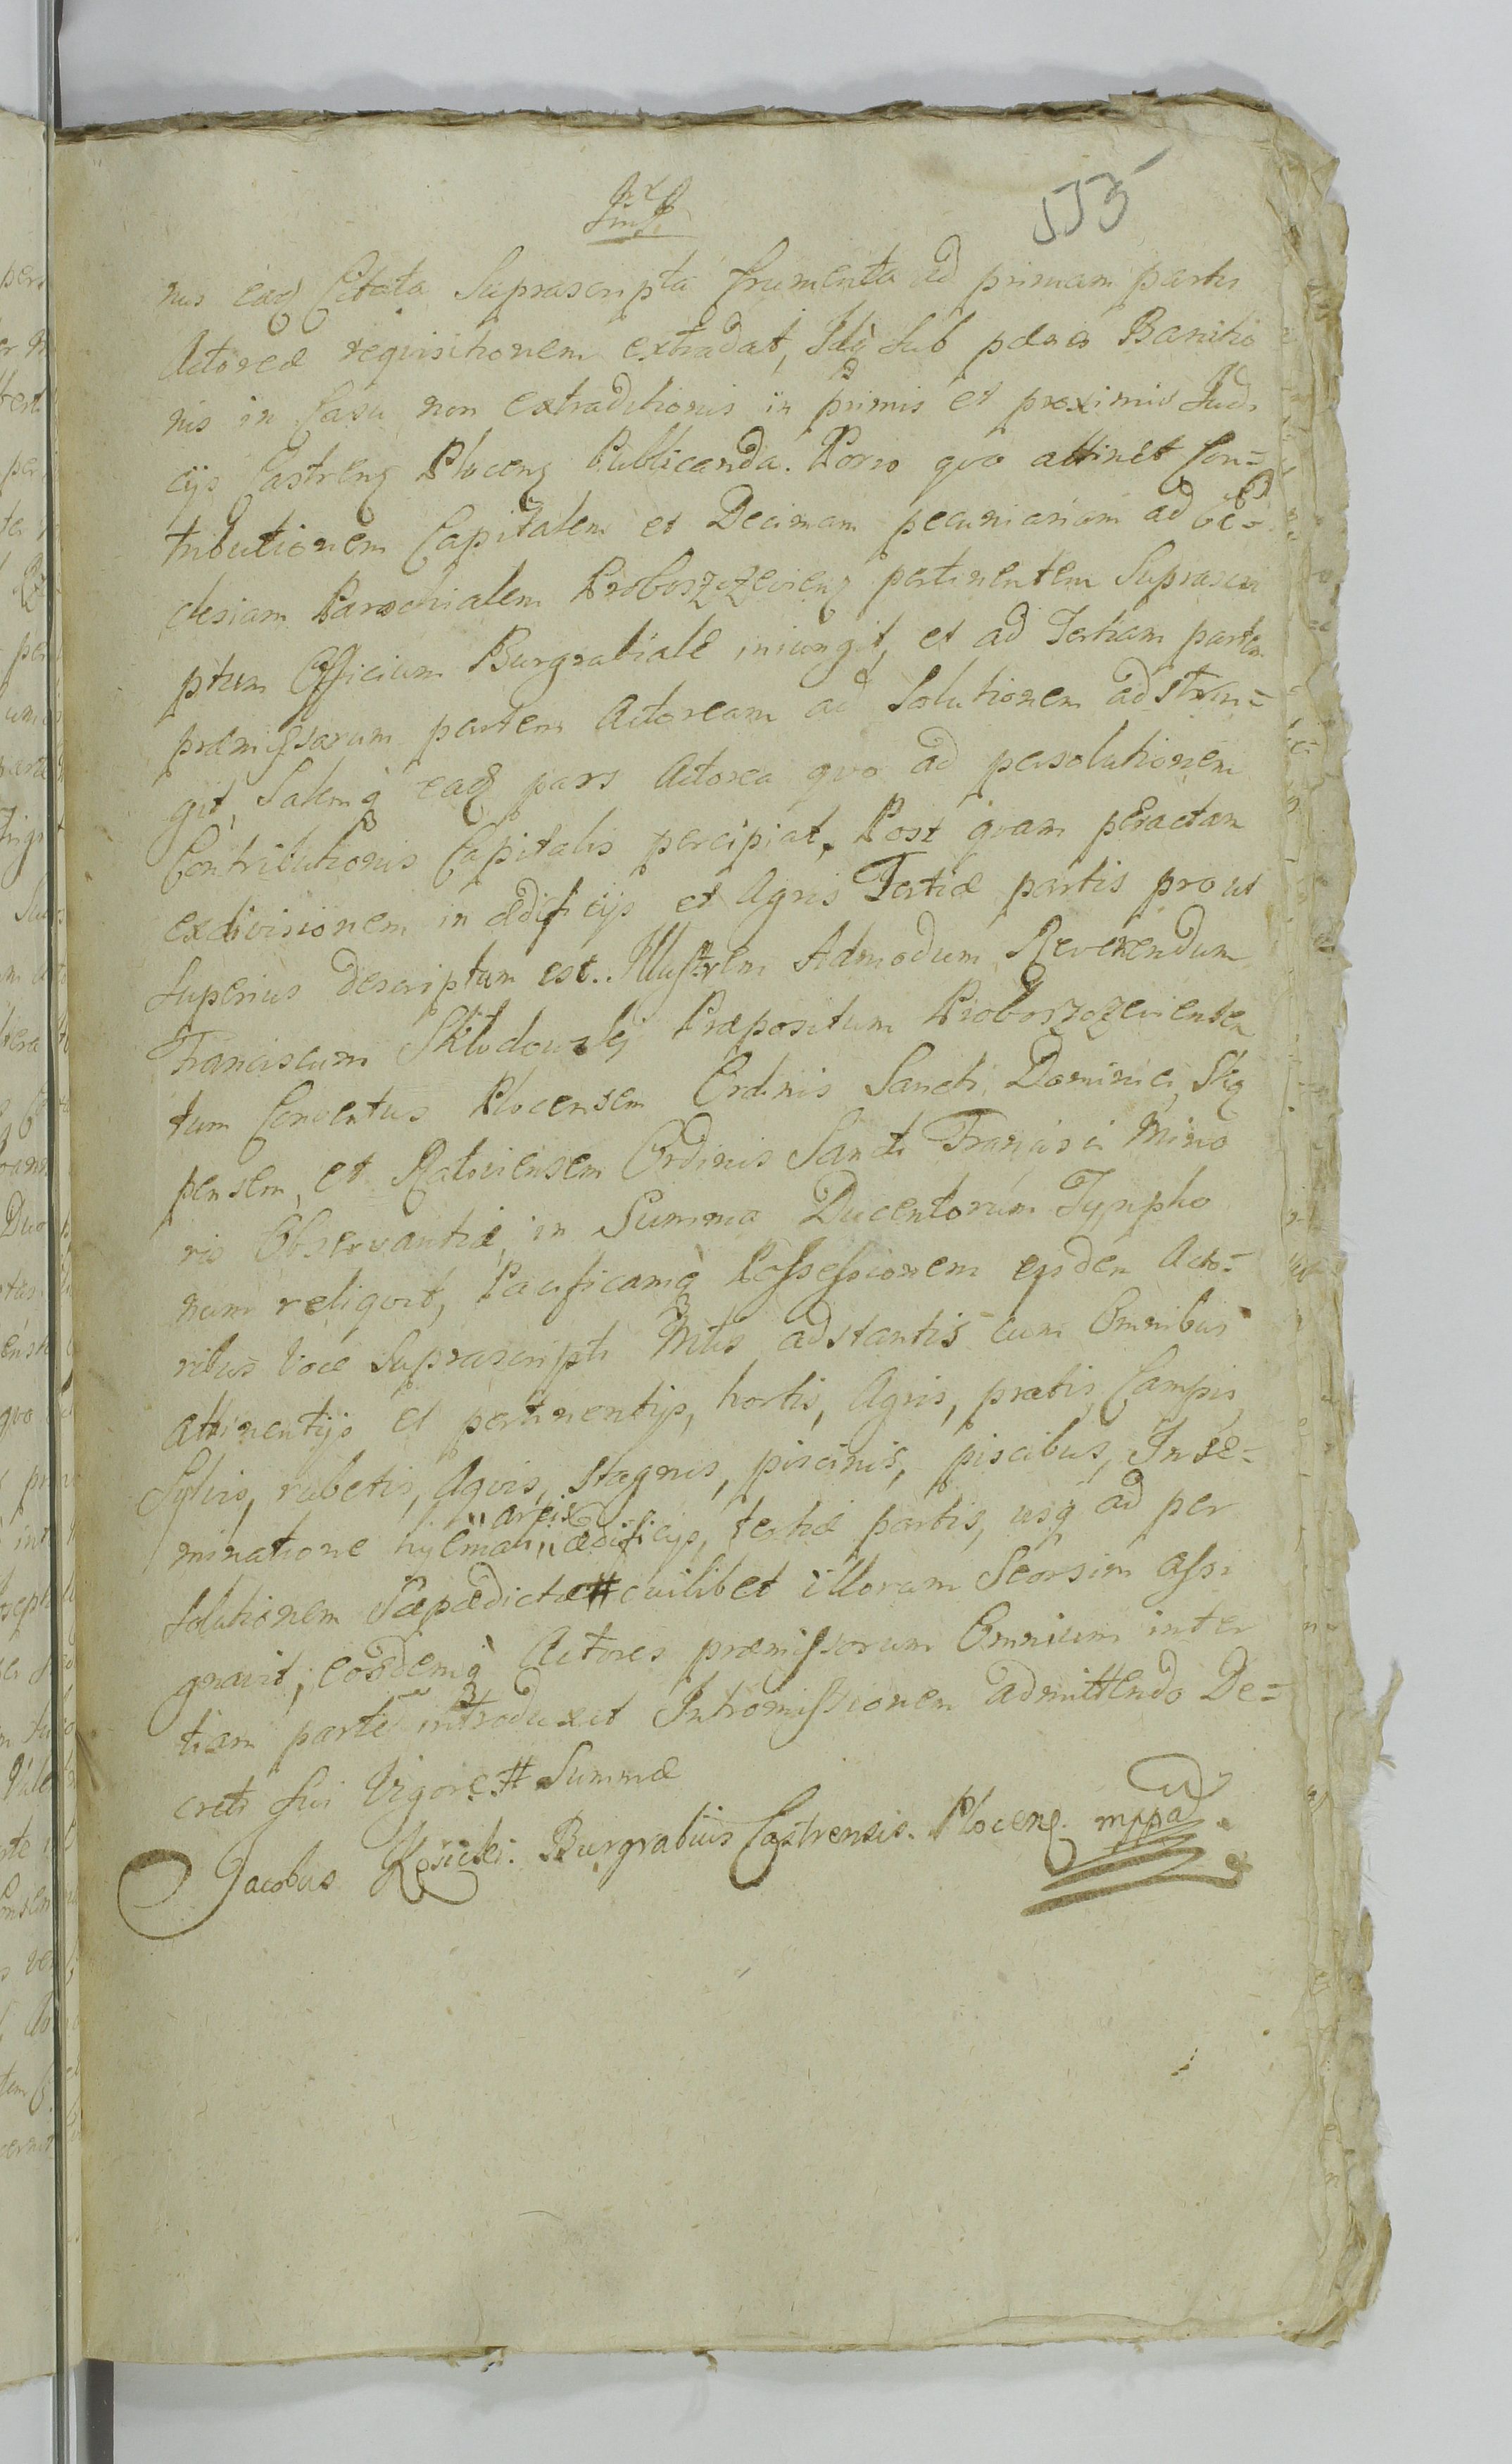 553
nis eaq Citata Suprascripta frumenta ad primam partis
Actoreæ requisitionem extradat, Idq̀ sub pænis Banitio
nis in Casu non extraditionis in primis et proximis Judi
cijs Castrenṣ Plocenṣ Publicanda. Porro qvo attinet Con=
tributionem Capitalem et Decimam pecuniariam ad Ec=
clesiam Parochialem Proboszczeviens pertinentem Suprascri
ptum Officium Burgrabiale iniungit, et ad Tertiam partem
præmissarum partem Actoream ad Solutionem adstrin=
git, Salemq̀ eaq pars Actorea qvo ad persolutionem
Contributionis Capitalis percipiat, Post qvam peractam
exdivisionem in ædificijs et Agris Tertiæ partis prout
Superius descriptum est. Illustrem Admodum Reverendum
Franciscum Skłodowskj Præpositum Proboszczeviensem
tum Conventus Plocensem Ordinis Sancti Dominici, Skę
pensem, et Ratoviensem Ordinis Sancti Francisci Mino
ris Observantiæ, in Summa Ducentorum Tynpho
num reliqvit, Pacificamq̀ Possessionem ejsdem Acto=
ribus Voce Suprascripti Mtlis adstantis cum Omnibus
attinentijs et pertinentijs, hortis, Agris, pratis, Campis,
Sylvis, rubetis, Aqvis, Stagnis, piscinis, piscibus, Inse=
areis
minatione hyemali " ædificijs, tertiæ partis, usq ad per
solutionem Sæpædictæ # cuilibet illorum Seorsim assi
gnavit, eosdemq̀ Actores præmissorum Omnium inter
tiam parte introduxit Intromissionem admittendo De=
creti sui Vigore # Summæ
Jacobus Kosicki. Burgrabius Castrensis. Plocenṣ. mppa